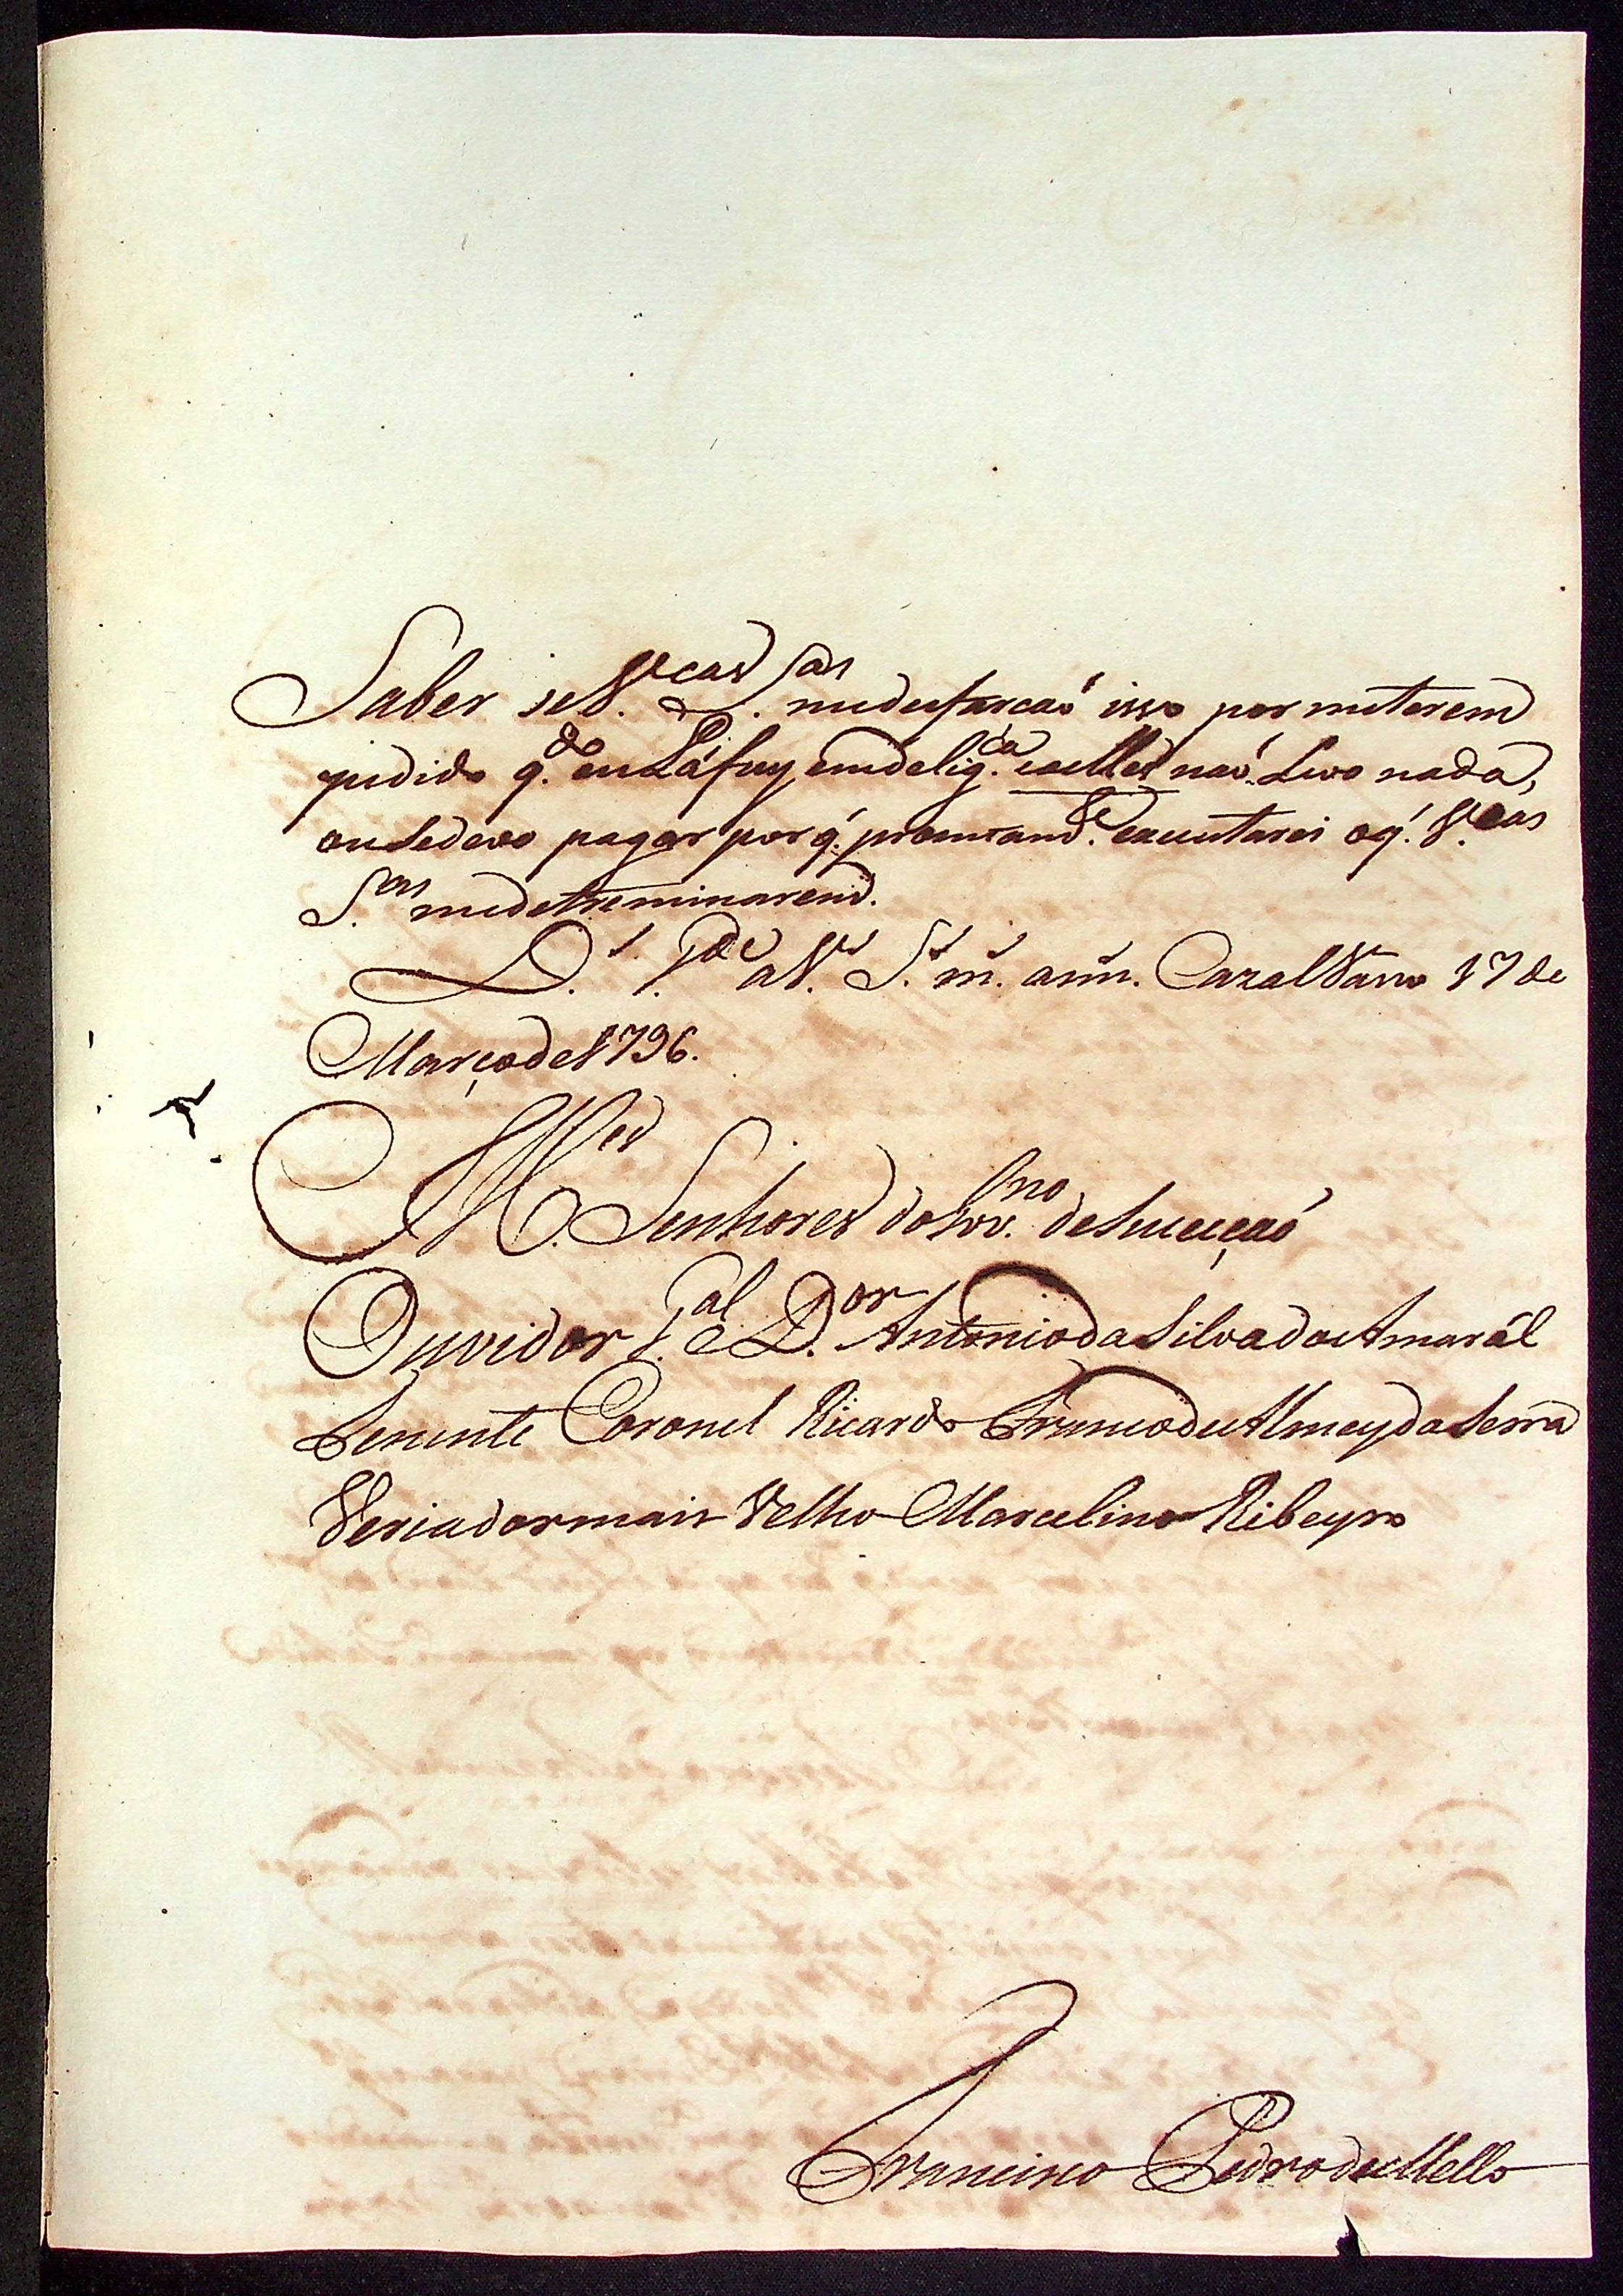 Saber se V.cas S.as me desfarcaõ isso por me terem
pedido q.do eu Lá fuy em delig.ca e a elles naõ Levo nada,
ou Se devo pagar por q. promtam.te executarei o q. V.cas
S.as me detreminarem.
D.s G.de a V.s S.s m. ann. Cazal Vasco 17 de
Março de 1796.
Il.es Senhores do Gov.no de Suceçaõ
Ouvidor G.al e D.or Antonio da Silva do Amarál
Tenente Coronel Ricardo Franco de Almeyda Serra
Veriador mais Velho Marcelino Ribeyro
Francisco Pedro de Mello